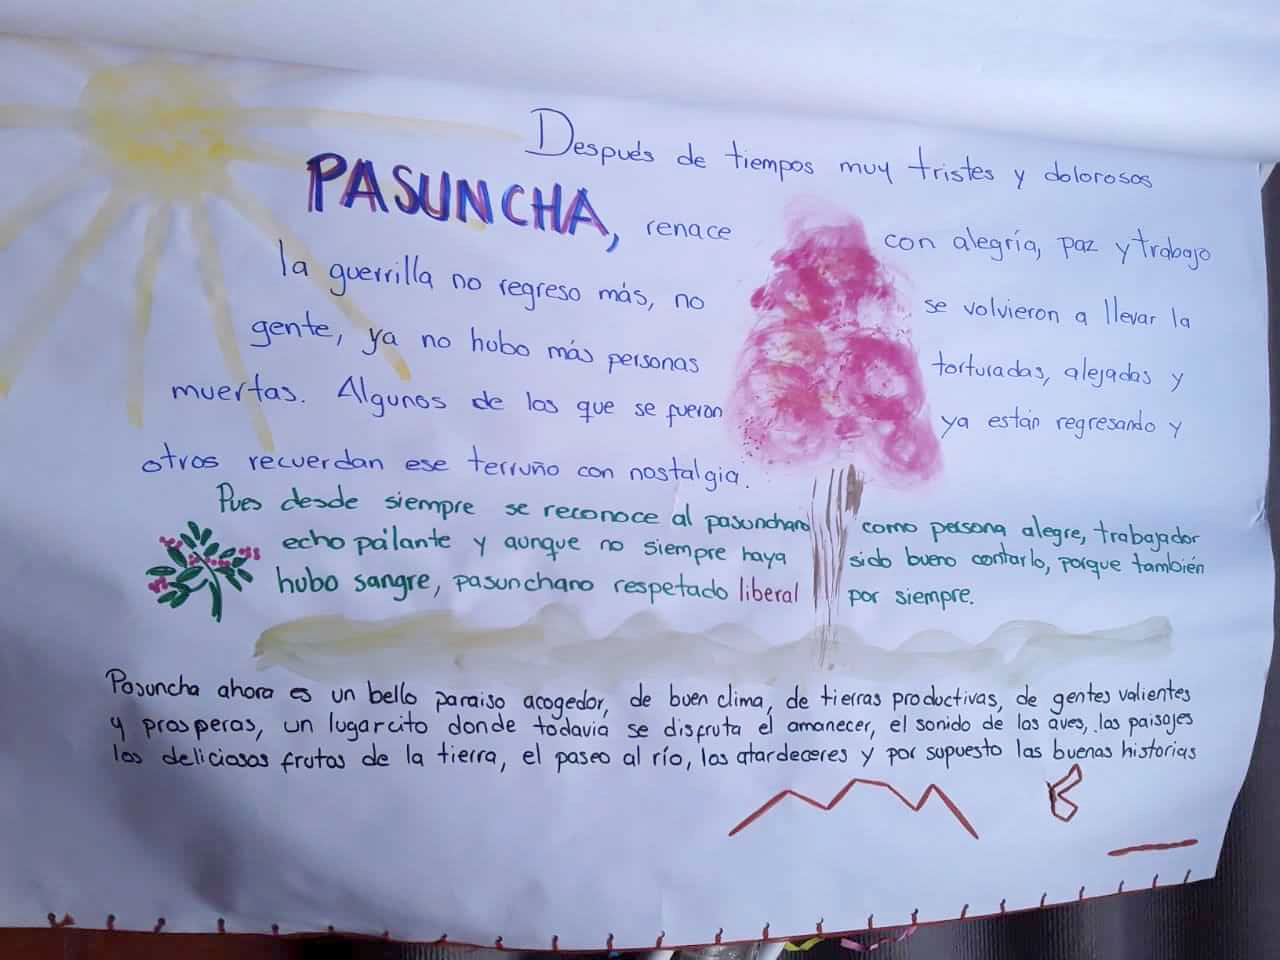 Después de tiempos muy tristes y dolorosos
PASUNCHA, renace con alegría, paz y trabajo
la guerrilla no regreso más, no se volvieron a llevar la
gente, ya no hubo más personas torturadas, alejadas y
muertas. Algunos de los que se fueron ya están regresando y
otros recuerdan ese terruño con nostalgia.
Pues desde siempre se reconoce al pasunchano como persona alegre, trabajador
echo pa'lante y aunque no siempre haya sido bueno contarlo, porque también
hubo sangre, pasunchano respetado liberal por siempre.
Pasuncha ahora es un bello paraiso acogedor, de buen clima, de tierras productivas, de gentes valientes
y prosperas, un lugarcito donde todavia se disfruta el amanecer, el sonido de las aves, los paisajes
los deliciosos frutos de la tierra, el paseo al río, los atardeceres y por supuesto las buenas historias